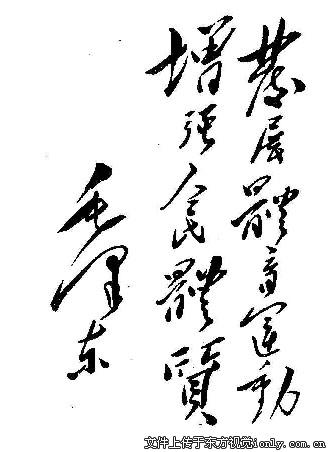 發展體育運動
增强人民體質
毛泽东
文件上传于东方视觉ionly.com.cn